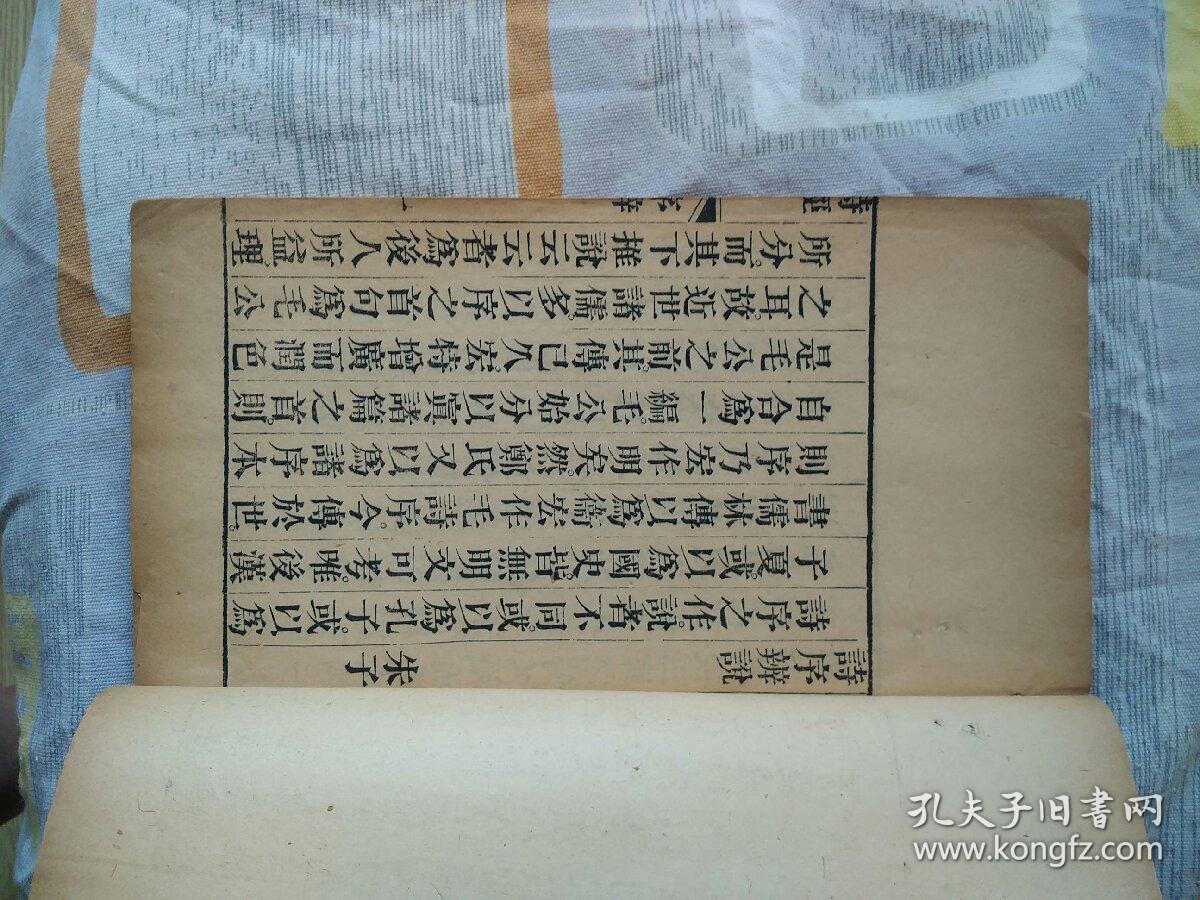 詩序辨說 朱子
詩序之作。說者不同。或以爲孔子。或以爲
子夏。或以爲國史。皆無明文可考。唯後漢
書儒林傳以爲衛宏作毛詩序。今傳於世。
則序乃宏作明矣。然鄭氏又以爲諸序本
自合爲一編。毛公始分以寘諸篇之首。則
是毛公之前。其傳已久。宏特增廣而潤色
之耳。故近世諸儒。多以序之首句爲毛公
所分。而其下推說云云者爲後人所益。理
孔夫子旧书网
www.kongfz.com